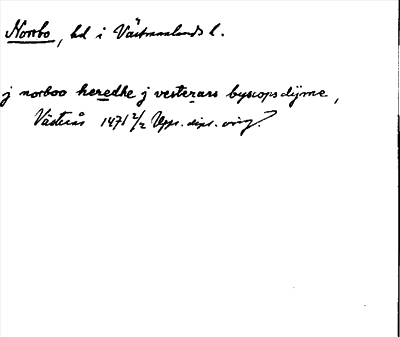 Norrbo, hd i Västmanlands l.
j norboo heredhe j vesterars byscopsdijme,
Västerås 1471 2/2 Upps. dipl. orig.